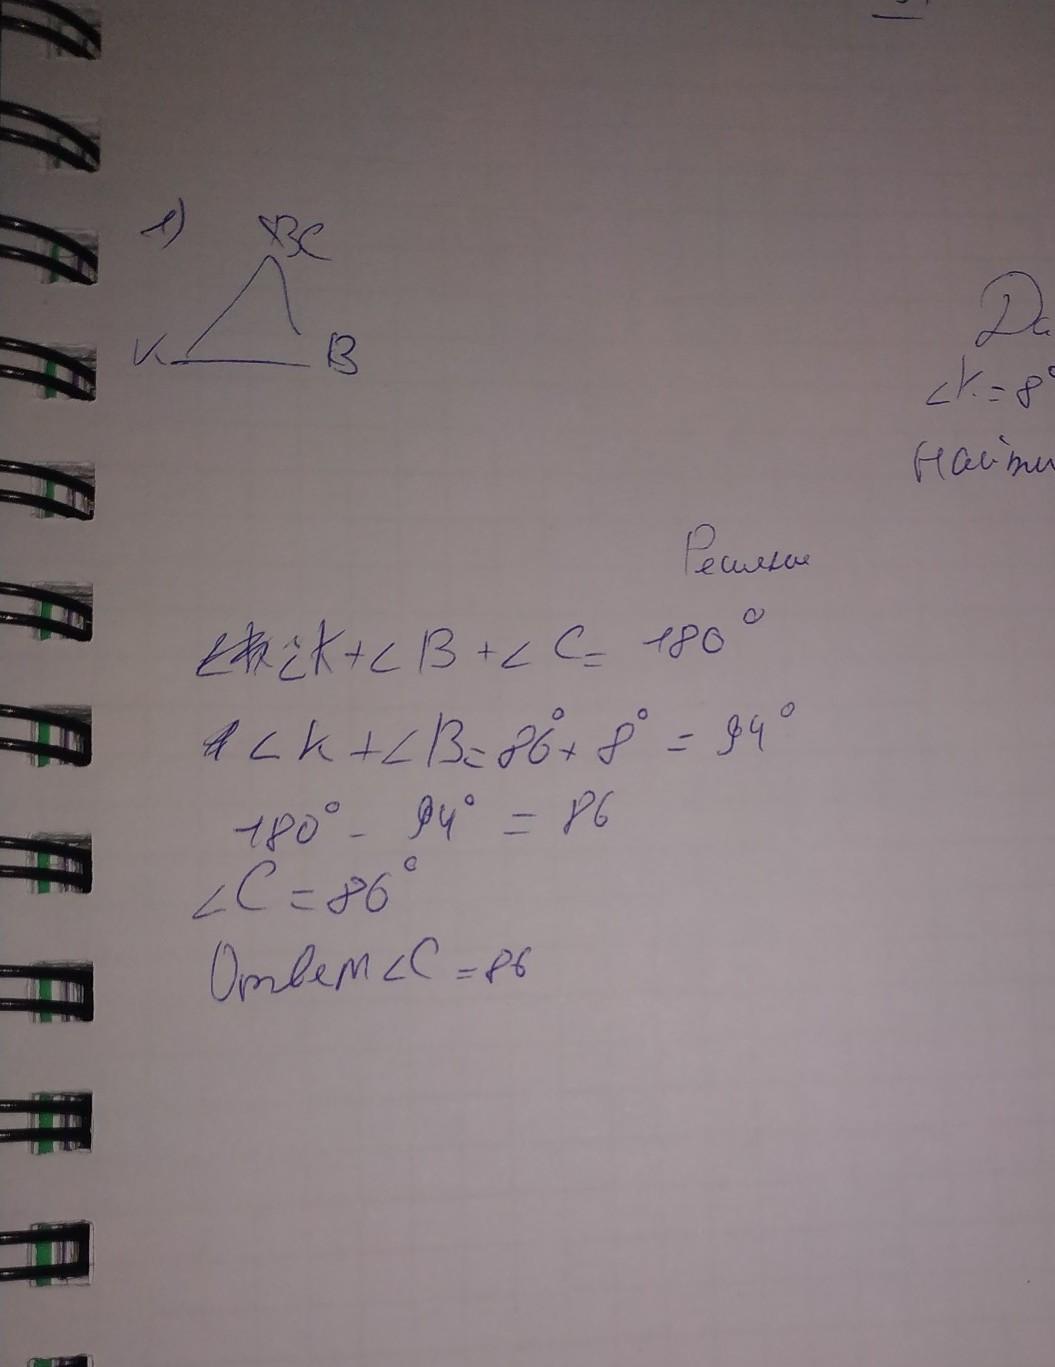 1) C
K B
Да
<K = 8°
Найти
Решение
<K + < B + < C = 180°
< K + < B = 86° + 8° = 94°
180° - 94° = 86
<C = 86°
Ответ <C = 86